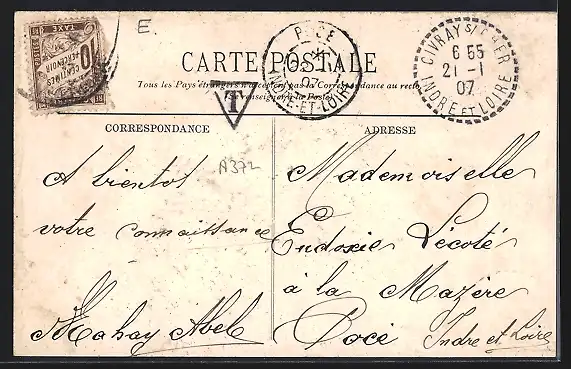 E
10
CENTIMES
À PERCEVOIR
TAXE
CARTE POSTALE
Tous les Pays étrangers n'acceptent pas la Correspondance au recto
(se renseigner à la Poste)
T
07
INDRE-ET-LOIRE
CIVRAY S/ CHER
6 55
21 -1
07
INDRE ET LOIRE
CORRESPONDANCE
ADRESSE
A372
A bientot
votre connaissance
Mahay Abel
Mademoiselle
Eudoxie Lécoté
à la Mazère
Docé Indre et Loire